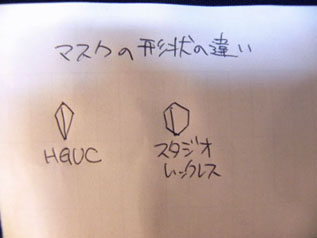 マスクの形状の違い
HGUC
スタジオ
レックレス